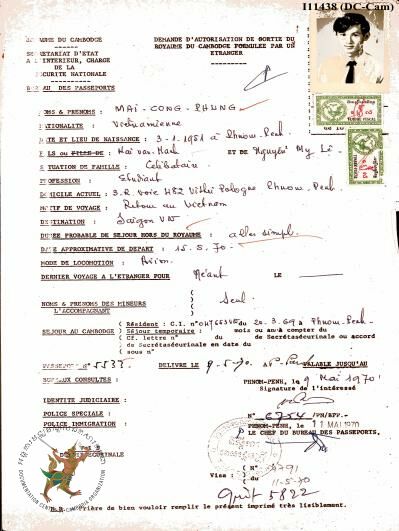 I11438 (DC-Cam)
ROYAUME DU CAMBODGE
DEMANDE D'AUTORISATION DE SORTIE DU
ROYAUME DU CAMBODGE FORMULEE PAR UN
ETRANGER
SECRETARIAT D'ETAT
A L'INTERIEUR, CHARGE
DE LA
SECURITE NATIONALE
BUREAU DES PASSEPORTS
NOMS & PRENOMS : MAI-CONG-PHUNG
NATIONALITE : Vietnamienne
DATE ET LIEU DE NAISSANCE : 3-1-1951 à Phnom-Penh
FILS ou FILLE DE : Mai van et DE Nguyễn Mỹ Lê
SITUATION DE FAMILLE : Célibataire
PROFESSION : Etudiant
DOMICILE ACTUEL : 3.R voie 482 Vithei Pologne Phnom-Penh
MOTIF DE VOYAGE : Retour au Vietnam
DESTINATION : Saigon VN
DUREE PROBABLE DE SEJOUR HORS DU ROYAUME : aller simple
DATE APPROXIMATIVE DE DEPART : 15.5.70
MODE DE LOCOMOTION : Avion
DERNIER VOYAGE A L'ETRANGER POUR Néant LE
NOMS & PRENOMS DES MINEURS
L'ACCOMPAGNANT : Seul
( Résident : C.I. n° du 20.3.69 à Phnom-Penh
SEJOUR AU CAMBODGE ( Séjour temporaire : mois ou an/s à compter du
( Cf. lettre n° du de Secrétaséurinale ou accord
( de Secrétaséurinale en date du
( sous n°
PASSEPORT n° 5533 DELIVRE LE 9.5.70 VALABLE JUSQU'AU
BUREAUX CONSULTES :
PHNOM-PENH, le 9 Mai 1970
Signature de l'intéressé
IDENTITE JUDICIAIRE :
POLICE SPECIALE :
POLICE IMMIGRATION
N° 6754 /PN/BPP.-
PHNOM-PENH, LE 11 MAI 1970
LE CHEF DU BUREAU DES PASSEPORTS,
( N° 4791
Visa : ( du
11-5-70
5822
DOCUMENTATION CENTER OF CAMBODIA ORGANIZATION
N.B. Prière de bien vouloir remplir le présent imprimé très lisiblement.